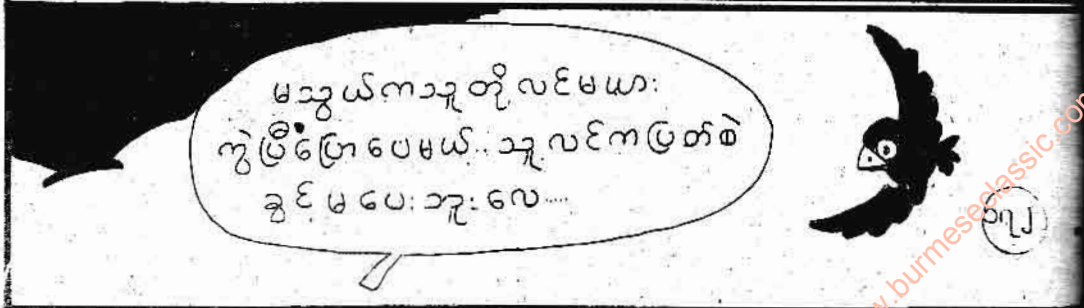 မသွယ်ကသူတို့လင်မယား
ကွဲပြီပြောပေမယ့်..သူ့လင်ကပြတ်စဲ
ခွင့်မပေးဘူးလေ.....
၁၇၂
www.burmeseclassic.com